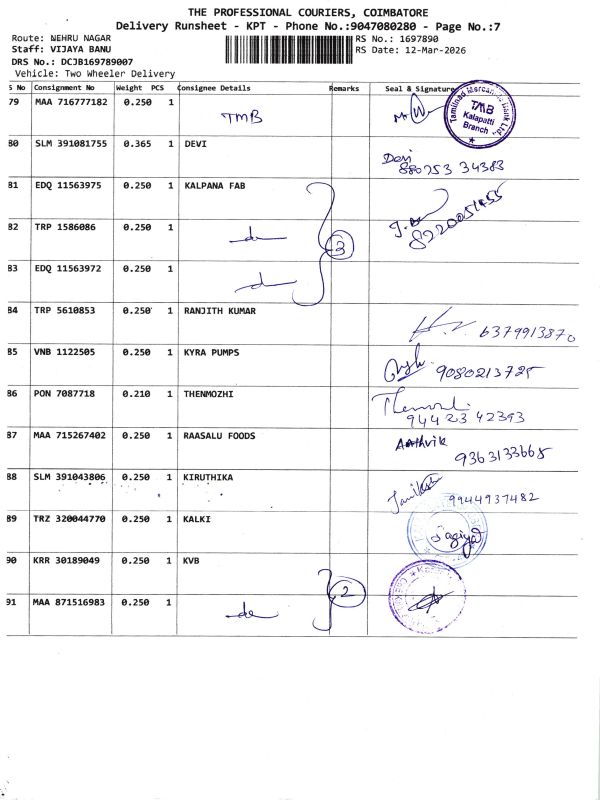 THE PROFESSIONAL COURIERS, COIMBATORE
Delivery Runsheet - KPT - Phone No.:9047080280 - Page No.:7
Route: NEHRU NAGAR
RS No.: 1697890
Staff: VIJAYA BANU
RS Date: 12-Mar-2026
DRS No.: DCJB169789007
Vehicle: Two Wheeler Delivery
S No Consignment No Weight PCS Consignee Details Remarks Seal & Signature
79 MAA 716777182 0.250 1 TMB
Tamilnad Mercantile Bank Ltd.,
TMB
Kalapatti
Branch
80 SLM 391081755 0.365 1 DEVI
Devi
88075 334383
81 EDQ 11563975 0.250 1 KALPANA FAB
8220051455
82 TRP 1586086 0.250 1 do
3
83 EDQ 11563972 0.250 1 do
84 TRP 5610853 0.250 1 RANJITH KUMAR
6379913870
85 VNB 1122505 0.250 1 KYRA PUMPS
9080213725
86 PON 7087718 0.210 1 THENMOZHI
94423 42393
87 MAA 715267402 0.250 1 RAASALU FOODS
Aathvik
9363133665
88 SLM 391043806 0.250 1 KIRUTHIKA
9944937482
89 TRZ 320044770 0.250 1 KALKI
90 KRR 30189049 0.250 1 KVB
2
91 MAA 871516983 0.250 1 do